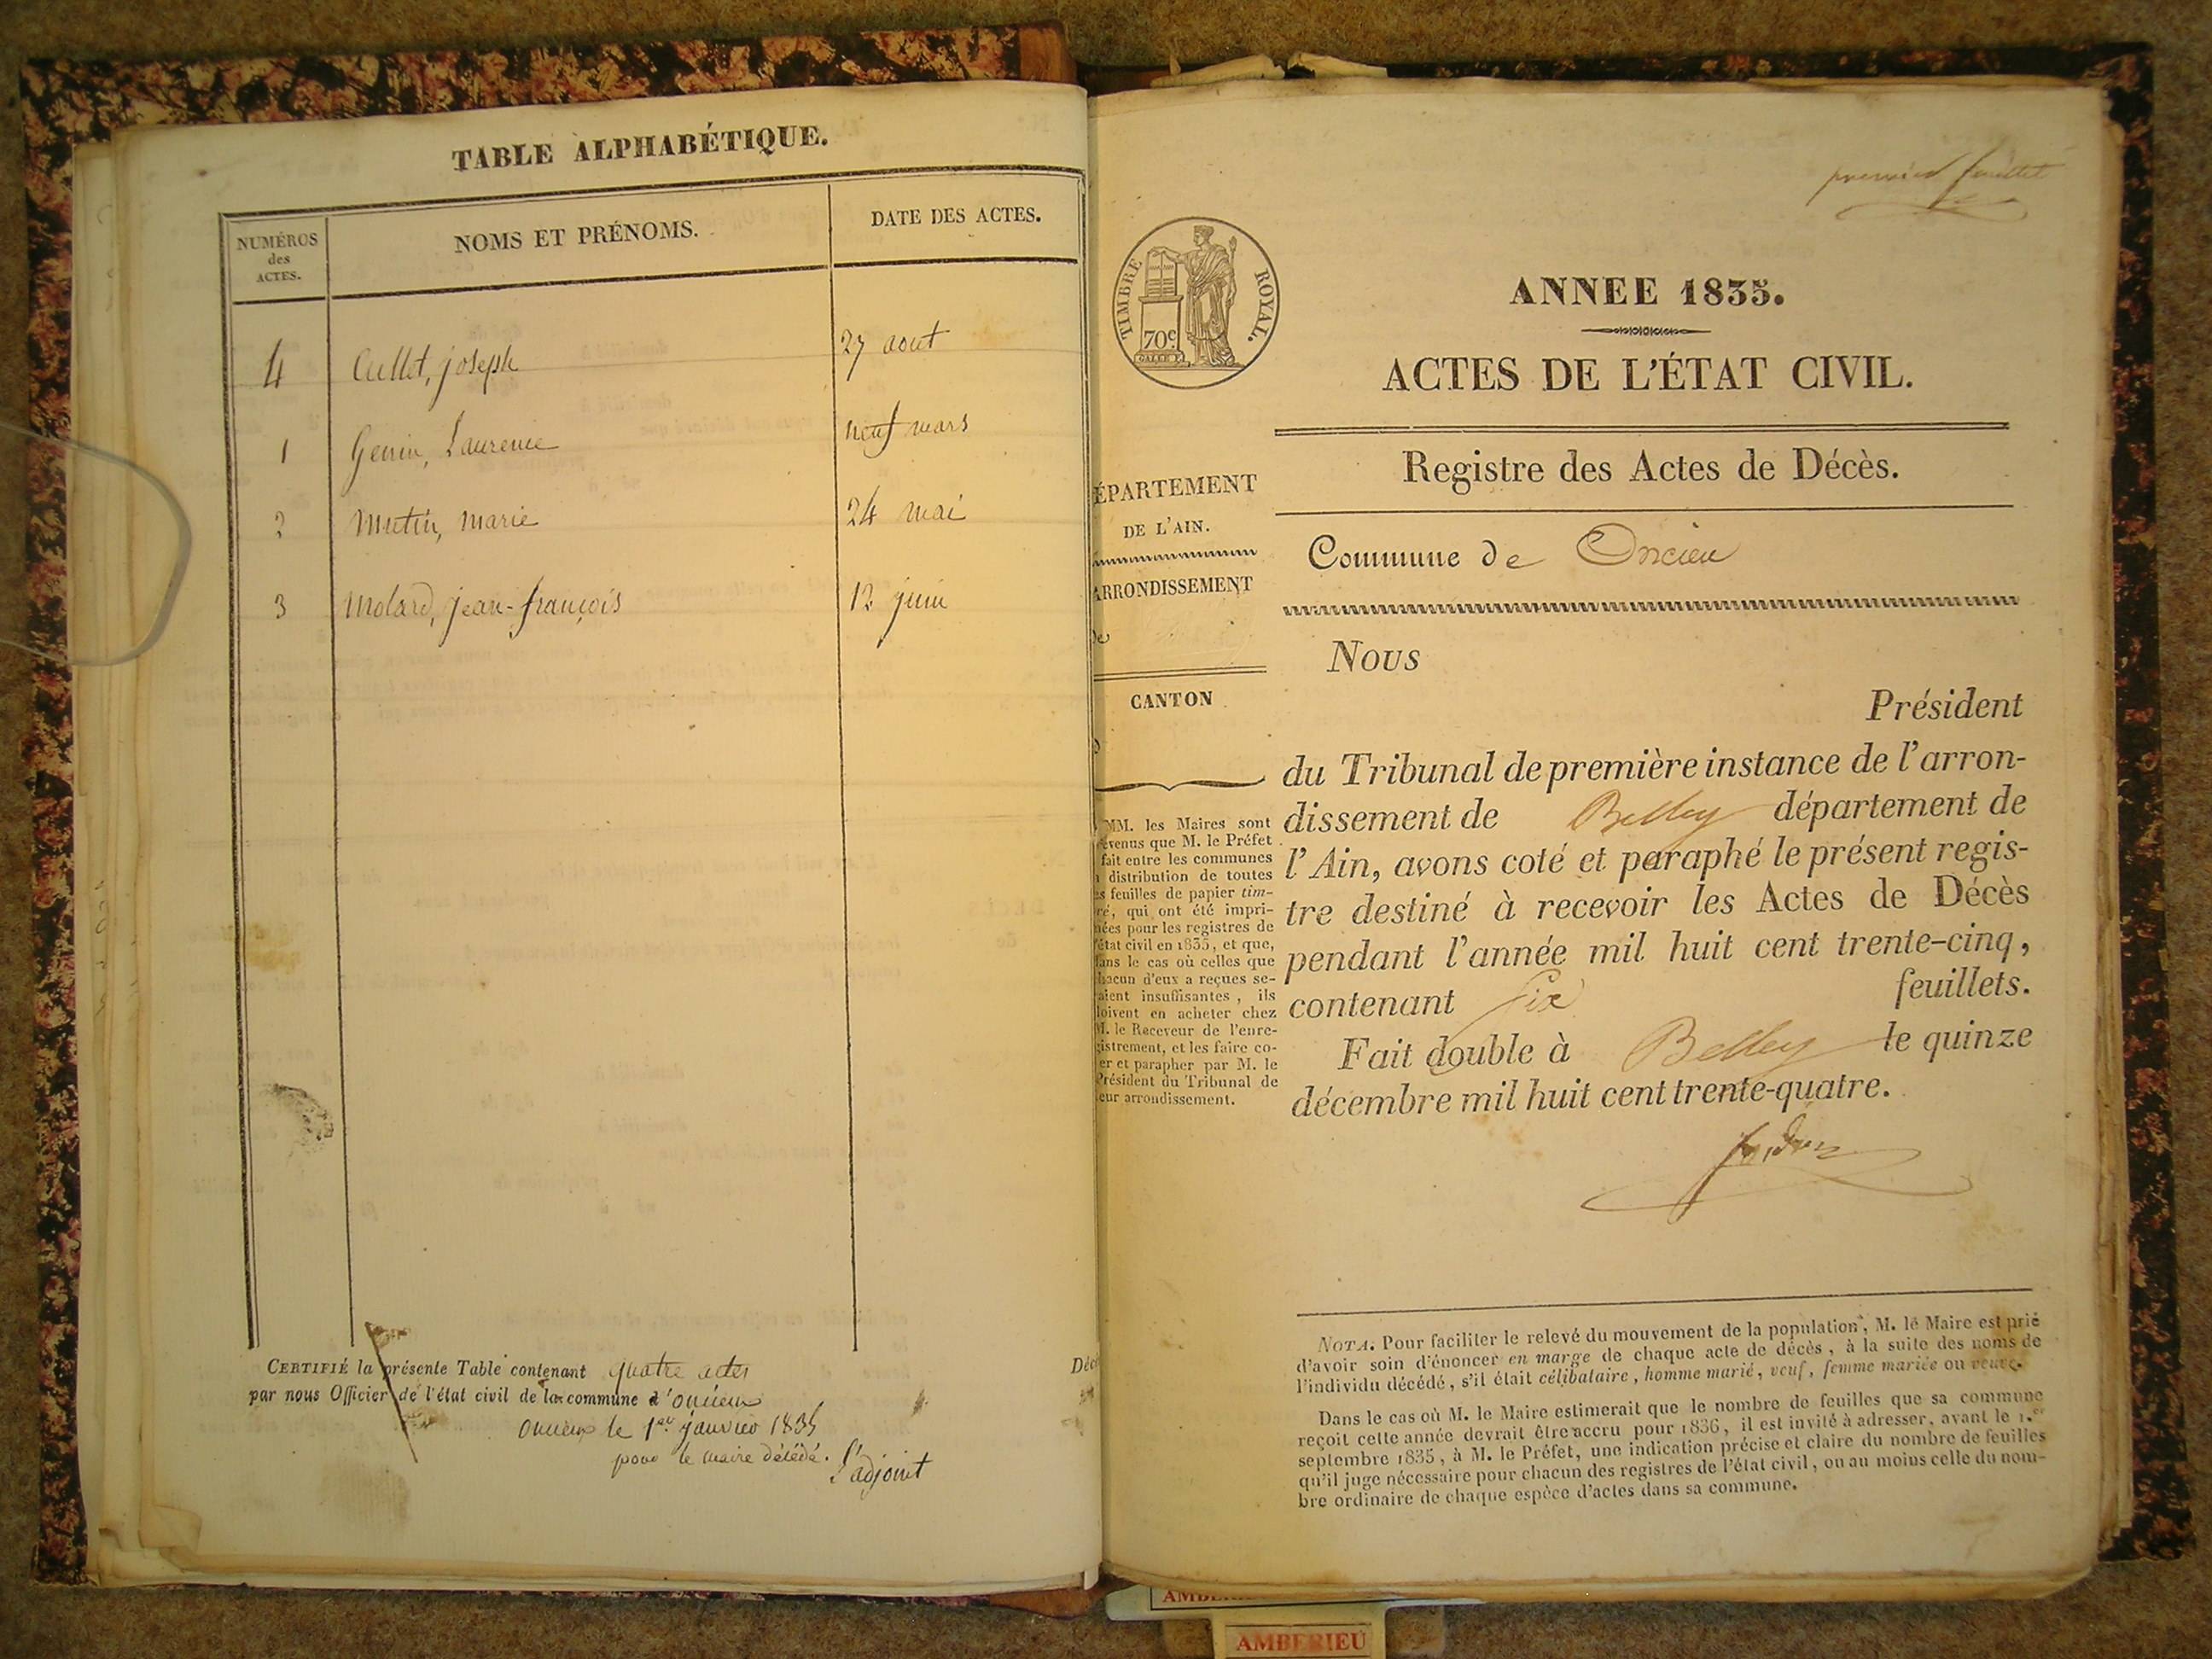 TABLE ALPHABÉTIQUE.
NUMÉROS des ACTES.
NOMS ET PRÉNOMS.
DATE DES ACTES.
4 Cullet, joseph 27 aout
1 Genin, Laurence neuf mars
2 Mutin, marie 24 mai
3 Molard, jean-françois 12 juin
CERTIFIÉ la présente Table contenant quatre actes
par nous Officier de l'état civil de la commune d'oncieux
oncieux le 1er janvier 1835
pour le maire décédé. L'adjoint
premier feuillet
TIMBRE ROYAL.
70c
ANNEE 1835.
ACTES DE L'ÉTAT CIVIL.
Registre des Actes de Décès.
ÉPARTEMENT
DE L'AIN.
ARRONDISSEMENT
CANTON
MM. les Maires sont
évenus que M. le Préfet
fait entre les communes
distribution de toutes
feuilles de papier tim-
ré, qui ont été impri-
mées pour les registres de
l'état civil en 1835, et que,
ans le cas où celles que
hacun d'eux a reçues se-
aient insuffisantes, ils
doivent en acheter chez
M. le Receveur de l'enre-
gistrement, et les faire co-
er et parapher par M. le
Président du Tribunal de
eur arrondissement.
Commune de Oncieu
Nous
Président
du Tribunal de première instance de l'arron-
dissement de Belley département de
l'Ain, avons coté et paraphé le présent regis-
tre destiné à recevoir les Actes de Décès
pendant l'année mil huit cent trente-cinq,
contenant Six feuillets.
Fait double à Belley le quinze
décembre mil huit cent trente-quatre.
NOTA. Pour faciliter le relevé du mouvement de la population, M. le Maire est prié
d'avoir soin d'énoncer en marge de chaque acte de décès, à la suite des noms de
l'individu décédé, s'il était célibataire, homme marié, veuf, femme mariée ou veuve.
Dans le cas où M. le Maire estimerait que le nombre de feuilles que sa commune
reçoit cette année devrait être accru pour 1836, il est invité à adresser, avant le 1.er
septembre 1835, à M. le Préfet, une indication précise et claire du nombre de feuilles
qu'il juge nécessaire pour chacun des registres de l'état civil, ou au moins celle du nom-
bre ordinaire de chaque espèce d'actes dans sa commune.
AMBERIEU